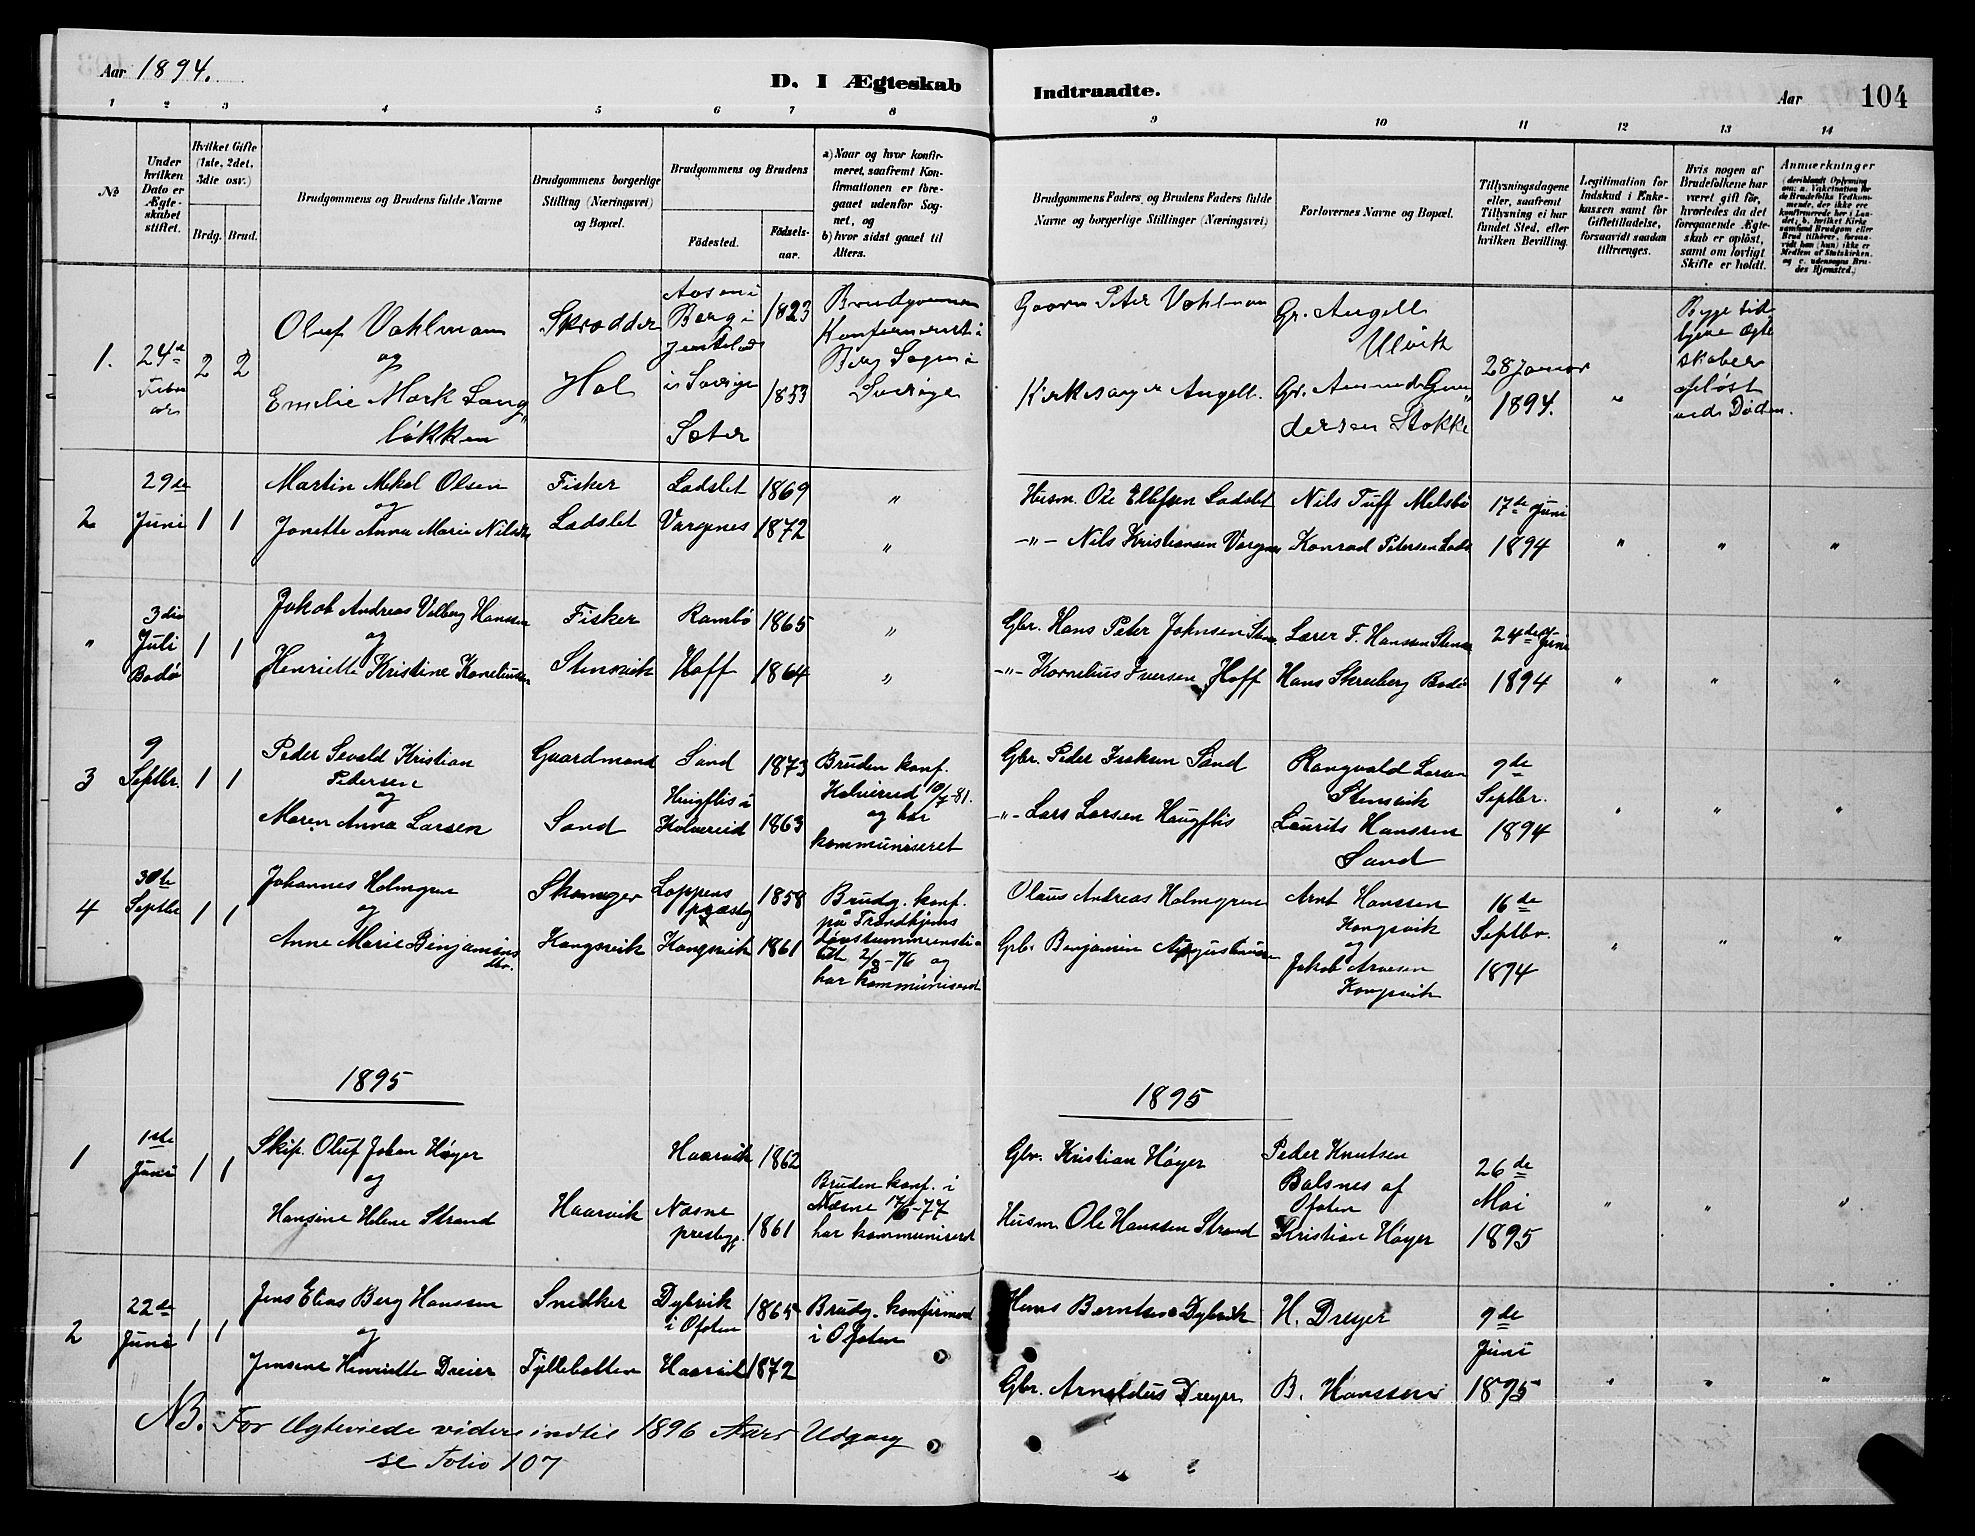 Aar 1894.
D. I Ægteskab Indtraadte.
Aar 104
1 2 3 4 5 6 7 8 9 10 11 12 13 14
No
Under hvilken Dato er Ægteskabet stiftet.
Hvilket Gifte (1ste, 2det, 3die osv.)
Brdg. Brud.
Brudgommens og Brudens fulde Navne
Brudgommens borgerlige Stilling (Næringsvei) og Bopæl.
Brudgommens og Brudens
Födested. Födselsaar.
a) Naar og hvor konfirmeret, saafremt Konfirmationen er foregaaet udenfor Sognet, og
b) hvor sidst gaaet til Alters.
Brudgommens Faders og Brudens Faders fulde Navne og borgerlige Stillinger (Næringsvei)
Forlovernes Navne og Bopæl.
Tillysningsdagene eller, saafremt Tillysning ei har fundet Sted, efter hvilken Bevilling.
Legitimation for Indskud i Enkekassen samt for Giftetilladelse, forsaavidt saadan tiltrænges.
Hvis nogen af Brudefolkene har været gift för, hvorledes da det foregaaende Ægteskab er oplöst, samt om lovligt Skifte er holdt.
Anmærkninger
1. 24de Februar 2 2
Oluf Vahlman
og
Emilie Mork Langløkken
Skrædder
Hol
Berg i Jemteland i Sverige 1823
Sæter 1853
Brudgommen Konfirmeret i Berg Sogn i Sverige
Gaarm Peter Vahlman
Kirkesanger Angell.
Gr. Angell Ulvik
Gr. Amund Gundersen Stokke
28 Januar 1894. "
Begge tidligere Ægteskaber opløst ved Døden.
2 29de Juni 1 1
Martin Mikal Olsen
og
Jonette Anna Marie Nilsdtr
Fisker
Ladslet
Ladslet 1869 "
Vargnes 1872 "
Husm. Ole Ellefsen Ladslet
-"- Nils Kristiansen Vargnes
Nils Tuff Melsbø
Konrad Petersen Lads
17de Juni 1894 " " "
" 3die Juli Bodø 1 1
Jakob Andreas Volberg Hanssen
og
Henriette Kristine Kornelius
Fisker
Stensvik
Rambø 1865 "
Hoff 1864 "
Gbr. Hans Peter Johnsen
-"- Kornelius Iversen Hoff
Lærer F. Hanssen
Hans Skreiberg Bodø
24de Juni 1894 " " "
3 9 Septbr. 1 1
Peder Sevald Kristian Pedersen
og
Maren Anna Larsen
Gaardmand
Sand
Sand 1873
Haugflis i Kolvereid 1863
Bruden konf. Kolvereid 10/7-81. og har kommuniseret
Gbr. Peder Isaksen Sand
-"- Lars Larsen Haugflis
Rangvald Larsen Stensvik
Laurits Hanssen Sand
9de Septbr. 1894 " " "
4 30te Septbr 1 1
Johannes Holmgren
og
Anne Marie Benjaminsdtr.
Skomager
Kongsvik
Loppens præstg 1858
Kongsvik 1861
Brudg. konf. på Trondhjems døvstummeinstitut 2/8-76 og har kommuniseret
Olaus Andreas Holmgren
Gbr. Benjamin Augustinusen
Arnt Hanssen Kongsvik
og
Jakob Arnesen Kongsvik
16de Septbr. 1894 " " "
1895 1895
1 1ste Juni 1 1
Skip. Oluf Johan Høyer
og
Hansine Helene Strand
Haarvik
Haarvik 1862
Næsne prestegj. 1861
Bruden konf. i Næsne 17/6-77 har kommuniseret
Gbr. Kristian Høyer
Husm. Ole Hanssen Strand
Peder Knutsen Balsnes af Ofoten
Kristian Høyer
26de Mai 1895 " " "
2 22de Juni 1 1
Jens Elias Berg Hanssen
og
Jensine Henriette Dreier
Snedker
Fyllebotten
Dybvik i Ofoten 1865
Haarvik 1872
Brudg. konfirmeret i Ofoten
Hans Berntsen Dybvik
Gbr. Arnoldus Dreyer
H. Dreyer
B. Hanssen
9de Juni 1895 " " "
NB. For Ægteviede videre indtil 1896 Aars Udgang
se Folio 107